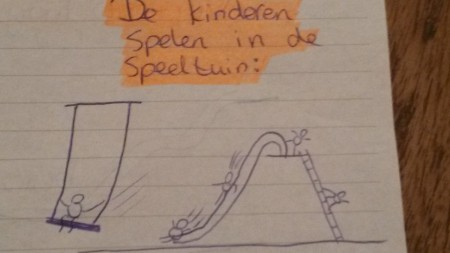 De kinderen
spelen in de
Speeltuin: